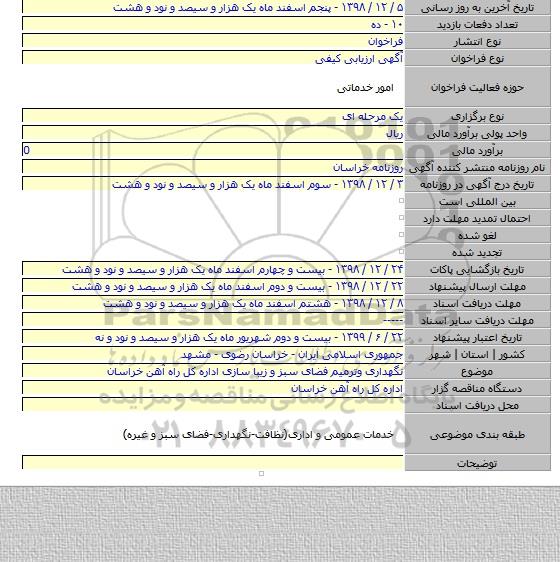 تاریخ آخرین به روز رسانی ۵ / ۱۲ / ۱۳۹۸ - پنجم اسفند ماه یک هزار و سیصد و نود و هشت
تعداد دفعات بازدید ۱۰ - ده
نوع انتشار فراخوان
نوع فراخوان آگهی ارزیابی کیفی
حوزه فعالیت فراخوان امور خدماتی
نوع برگزاری یک مرحله ای
واحد پولی برآورد مالی ریال
برآورد مالی 0
نام روزنامه منتشر کننده آگهی روزنامه خراسان
تاریخ درج آگهی در روزنامه ۳ / ۱۲ / ۱۳۹۸ - سوم اسفند ماه یک هزار و سیصد و نود و هشت
بین المللی است
احتمال تمدید مهلت دارد
لغو شده
تجدید شده
تاریخ بازگشایی پاکات ۲۴ / ۱۲ / ۱۳۹۸ - بیست و چهارم اسفند ماه یک هزار و سیصد و نود و هشت
مهلت ارسال پیشنهاد ۲۲ / ۱۲ / ۱۳۹۸ - بیست و دوم اسفند ماه یک هزار و سیصد و نود و هشت
مهلت دریافت اسناد ۸ / ۱۲ / ۱۳۹۸ - هشتم اسفند ماه یک هزار و سیصد و نود و هشت
مهلت دریافت سایر اسناد -----
تاریخ اعتبار پیشنهاد ۲۲ / ۶ / ۱۳۹۹ - بیست و دوم شهریور ماه یک هزار و سیصد و نود و نه
کشور | استان | شهر جمهوری اسلامی ایران - خراسان رضوی - مشهد
موضوع نگهداری وترمیم فضای سبز و زیبا سازی اداره کل راه آهن خراسان
دستگاه مناقصه گزار اداره کل راه آهن خراسان
محل دریافت اسناد
طبقه بندی موضوعی خدمات عمومی و اداری(نظافت-نگهداری-فضای سبز و غیره)
توضیحات
ParsNamadData
پایگاه اطلاع رسانی مناقصه و مزایده
۰۲۱-۸۸۳۴۹۶۷۰-۵